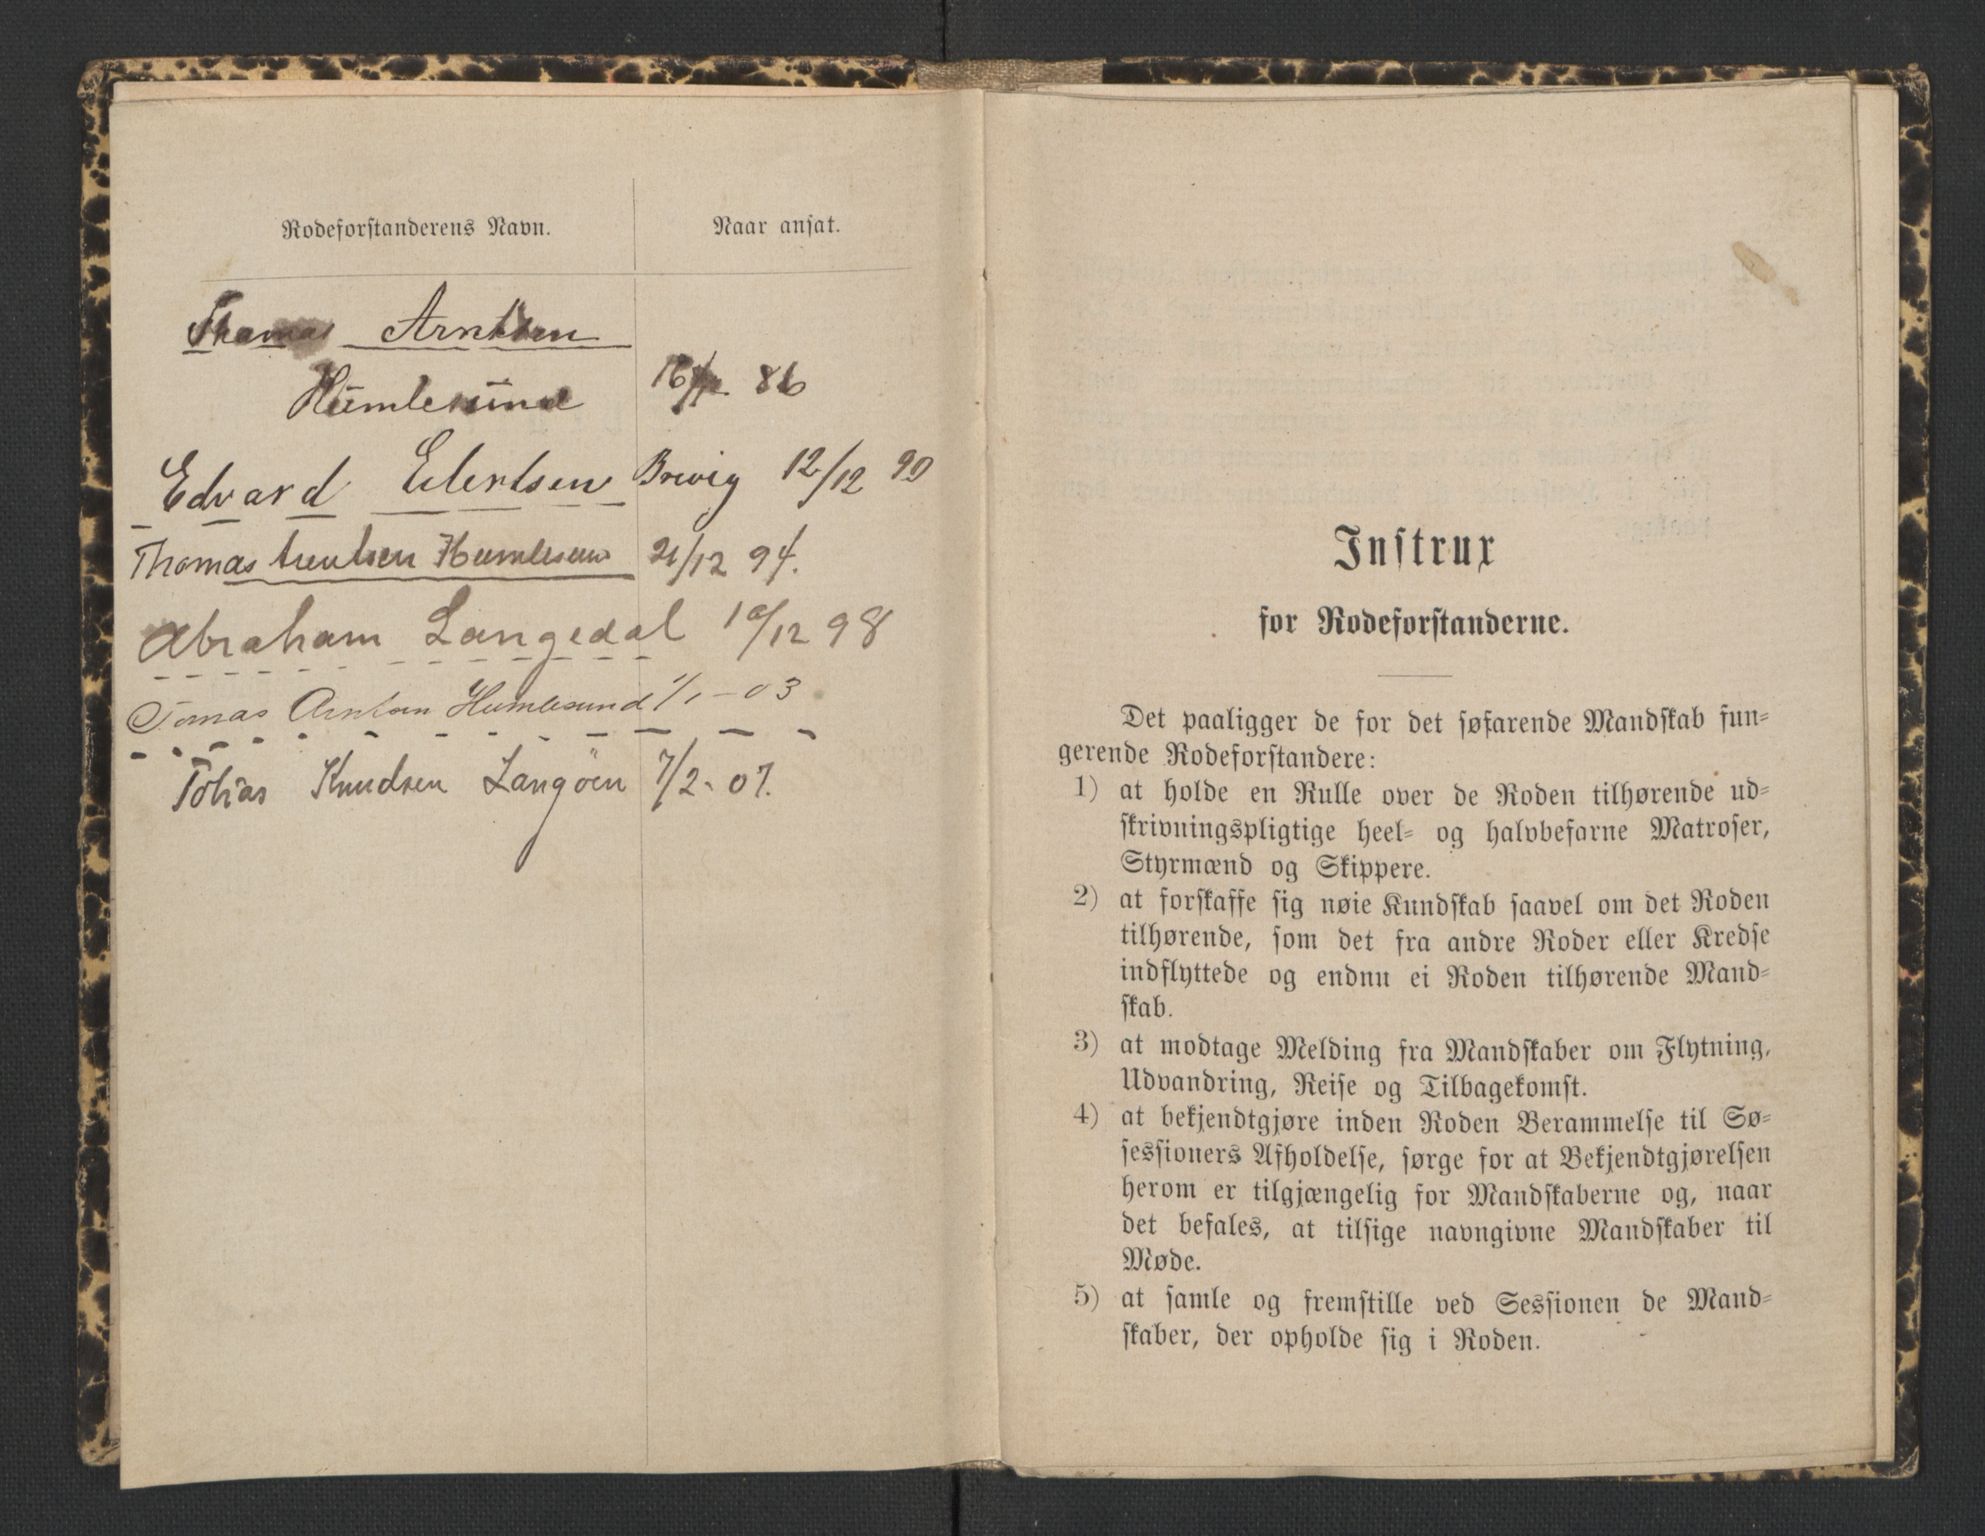 Rodeforstanderens Navn. Naar ansat.
Thomas Arntsen
Humlesund 86
Edvard Eilertsen Brevig 12/12 90
Thomas Arentsen Humlesun 21/12 94.
Abraham Langedal 10/12 98
Tomas Arntsen Humlesund 1/1 - 03
Tobias Knudsen Langöen 7/2. 07.
Instrux
for Rodeforstanderne.
Det paaligger de for det søfarende Mandskab fun-
gerende Rodeforstandere:
1) at holde en Rulle over de Roden tilhørende ud-
skrivningspligtige heel- og halvbefarne Matroser,
Styrmænd og Skippere.
2) at forskaffe sig nøie Kundskab saavel om det Roden
tilhørende, som det fra andre Roder eller Kredse
indflyttede og endnu ei Roden tilhørende Mand-
skab.
3) at modtage Melding fra Mandskaber om Flytning,
Udvandring, Reise og Tilbagekomst.
4) at bekjendtgjøre inden Roden Berammelse til Sø-
sessioners Afholdelse, sørge for at Bekjendtgjørelsen
herom er tilgjængelig for Mandskaberne og, naar
det befales, at tilsige navngivne Mandskaber til
Møde.
5) at samle og fremstille ved Sessionen de Mand-
skaber, der opholde sig i Roden.